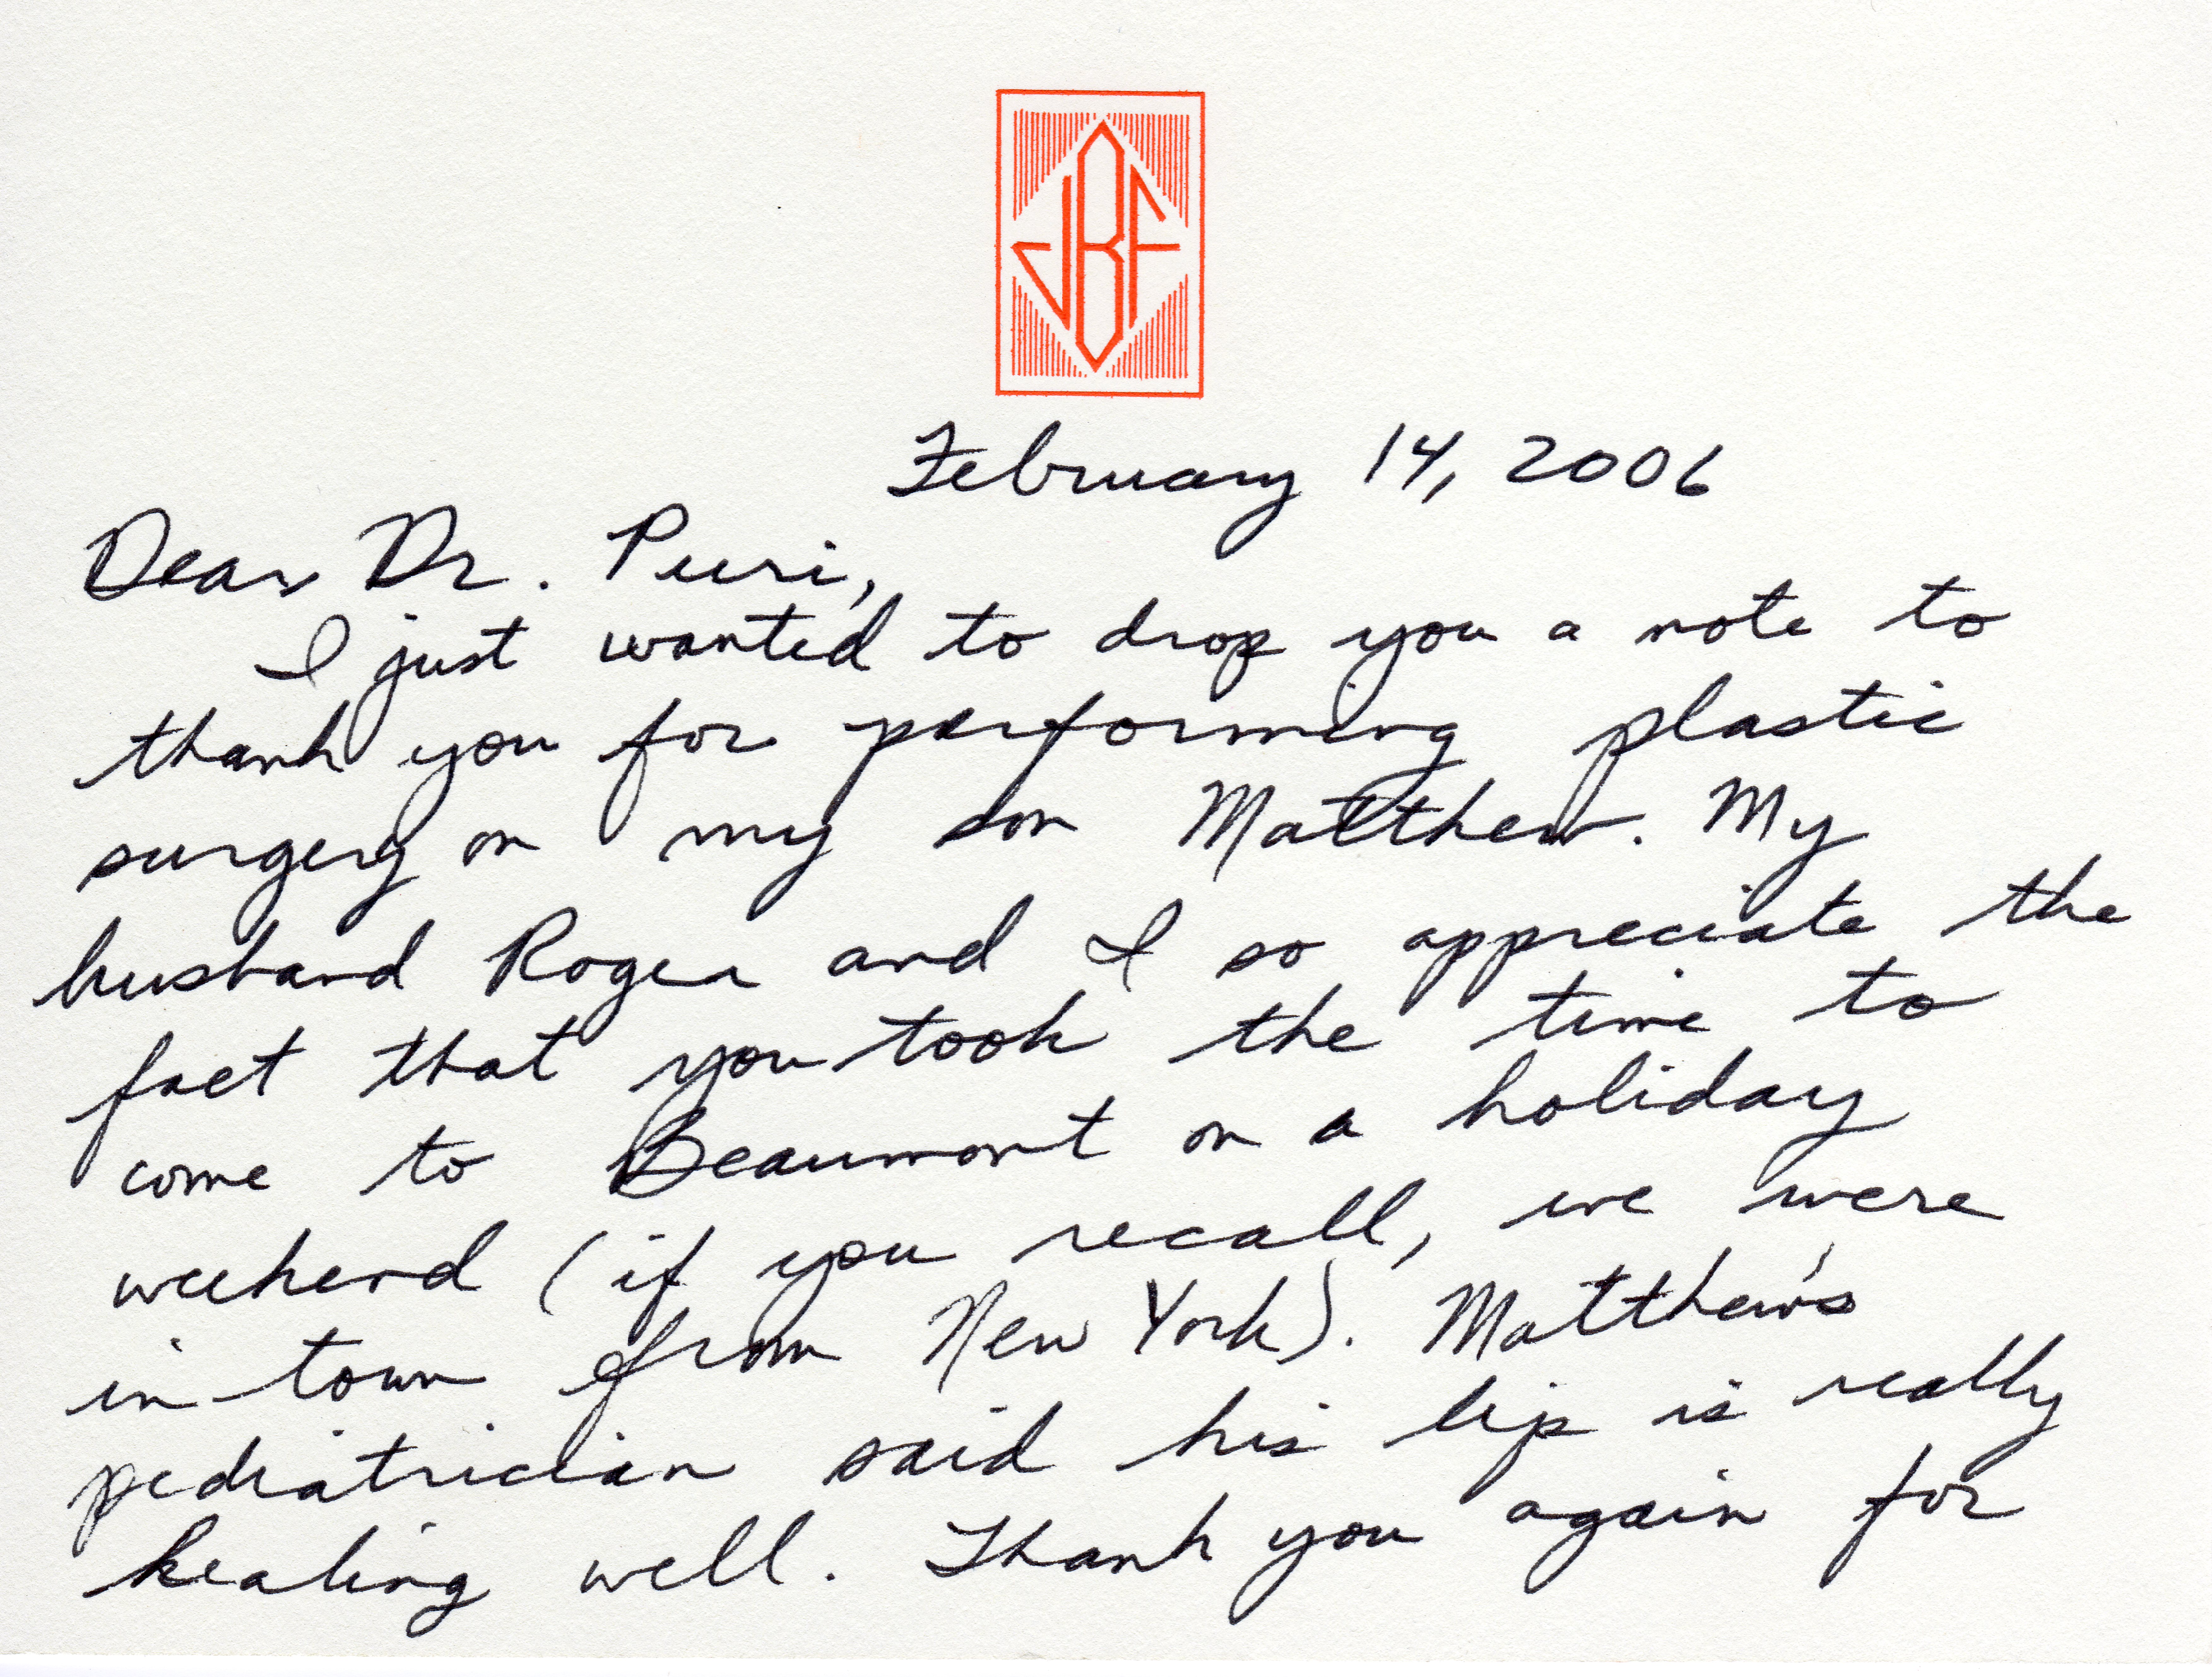 JBF
February 14, 2006
Dear Dr. Puri,
I just wanted to drop you a note to
thank you for performing plastic
surgery on my son Matthew. My
husband Roger and I so appreciate the
fact that you took the time to
come to Beaumont on a holiday
weekend (if you recall, we were
in town from New York). Matthew's
pediatrician said his lip is really
healing well. Thank you again for